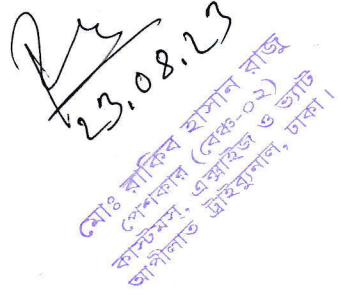 23.08.23
মোঃ রাকিব হাসান রাজু
পেশকার (বেঞ্চ-০২)
কাস্টমস, এক্সাইজ ও ভ্যাট
আপীলাত ট্রাইব্যুনাল, ঢাকা।